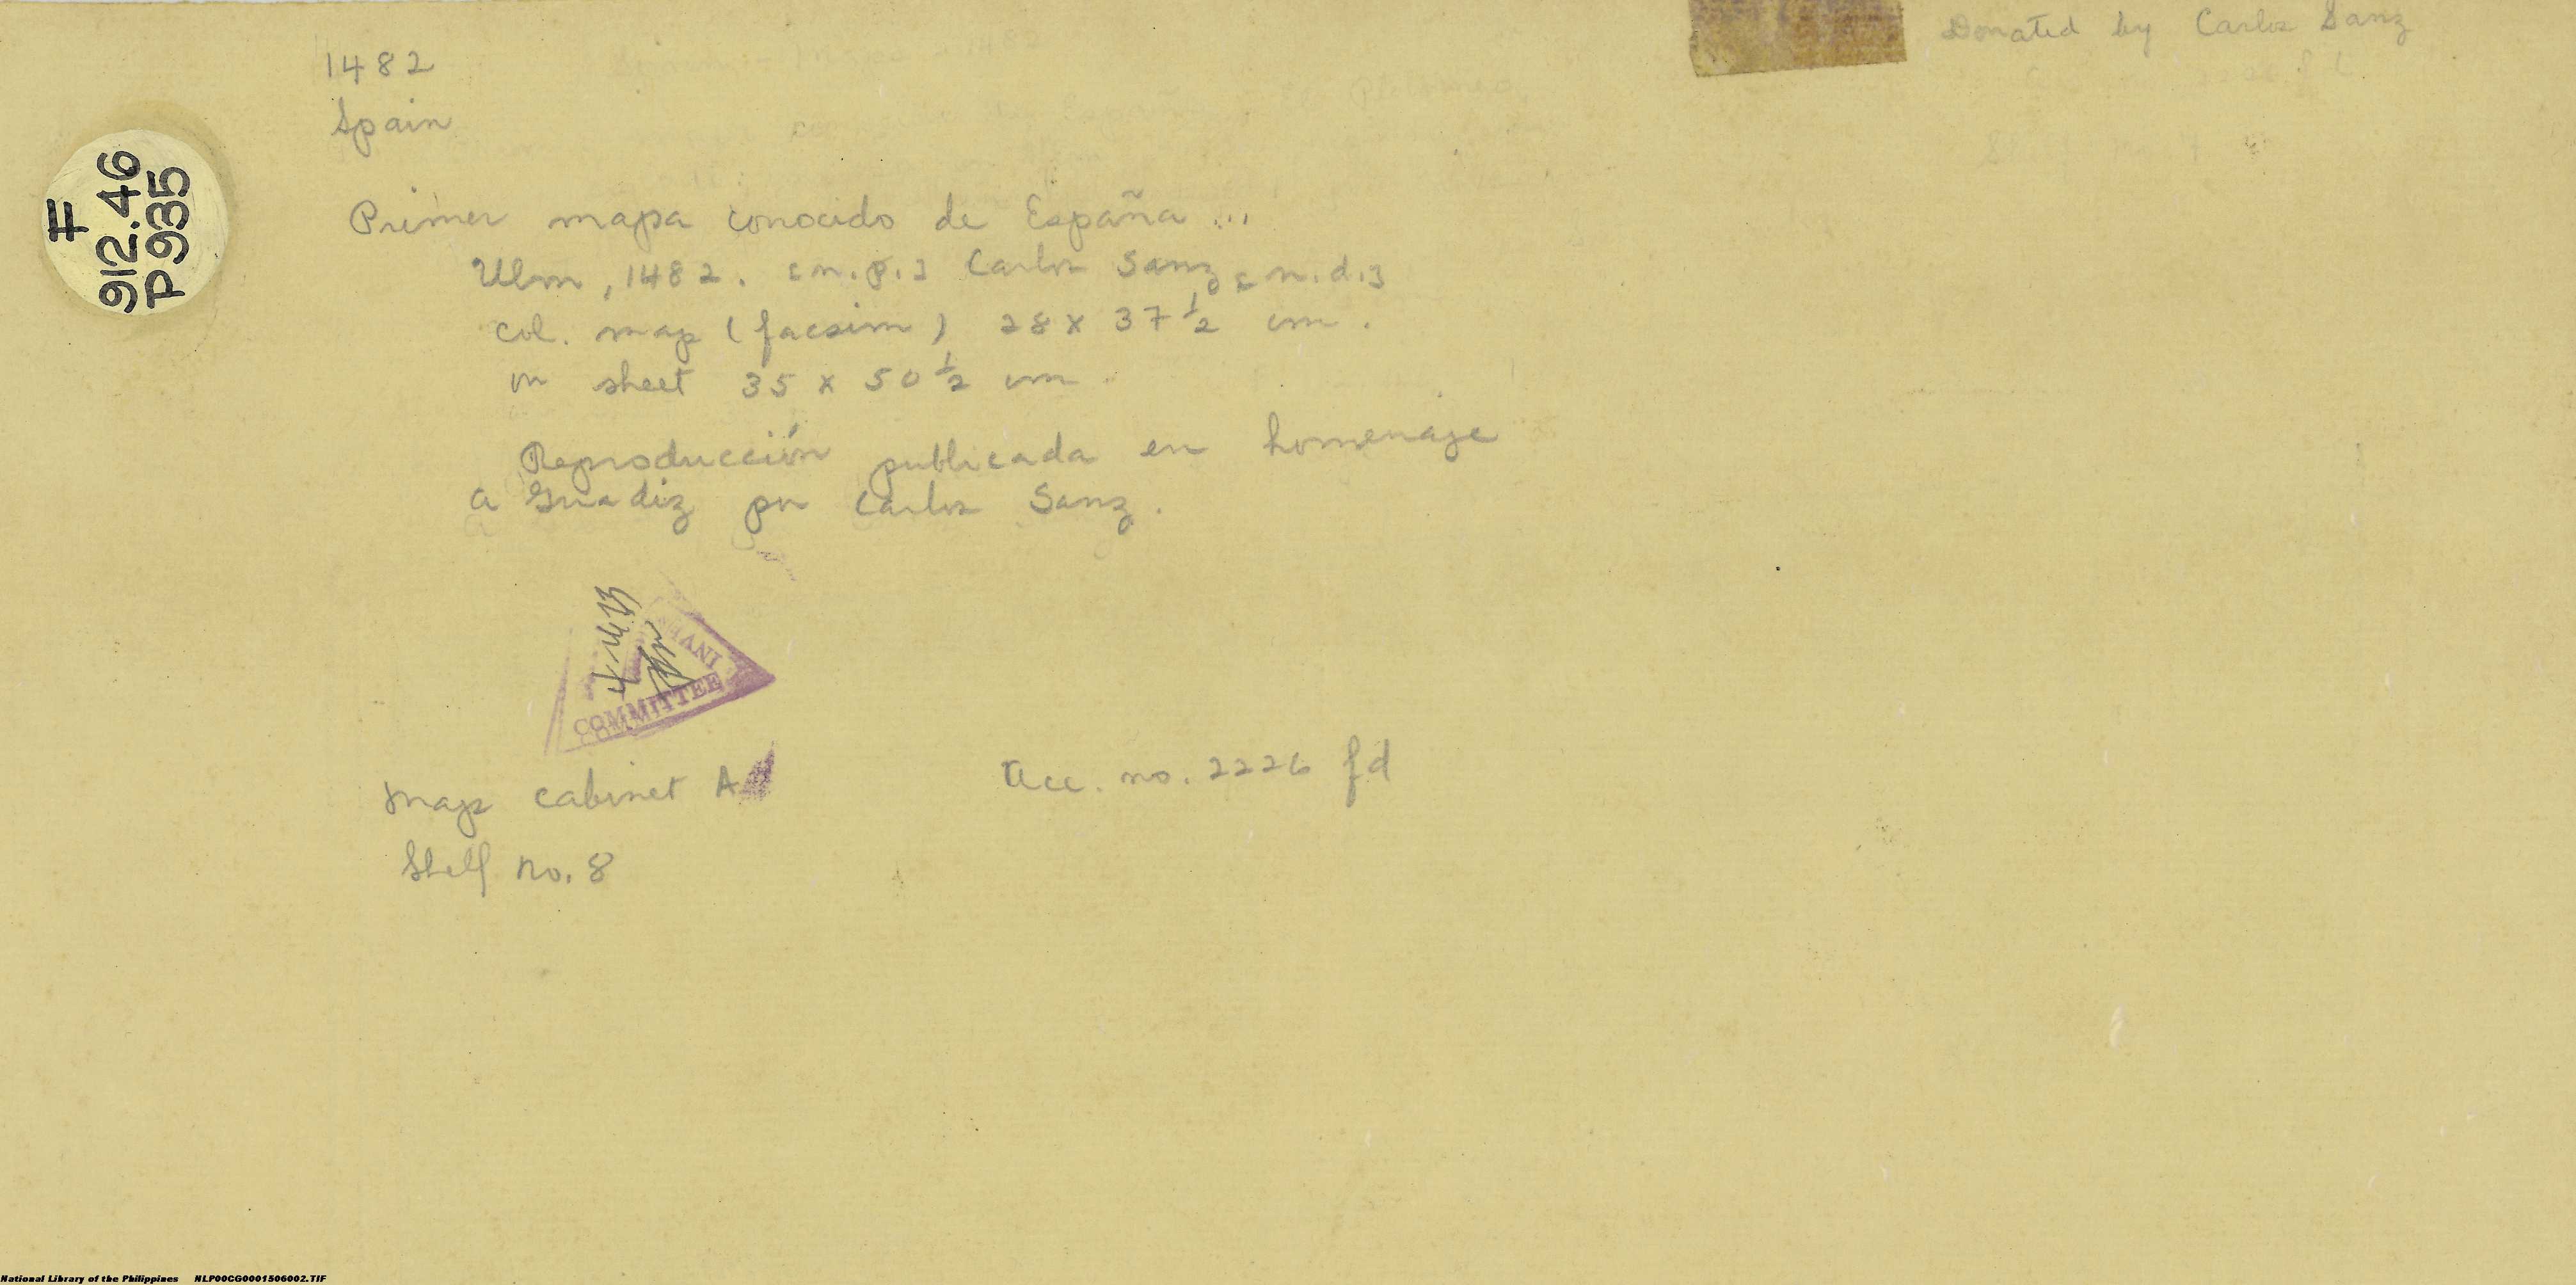 Donated by Carlos Sanz
1482
Spain
F
912.46
P935
Primer mapa conocido de España ...
Ulm, 1482. [n.p.] Carlos Sanz [n.d.]
col. map (facsim) 28 x 37 1/2 cm.
on sheet 35 x 50 1/2 cm.
Reproducción publicada en homenaje
a Guadiz por Carlos Sanz.
COMMITTEE
Map cabinet A
Acc. no. 2226 fd
Shelf no. 8
National Library of the Philippines NLP00CG0001506002.TIF